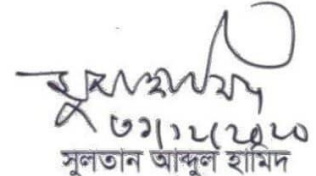 ৩১/১২/২০২০
সুলতান আব্দুল হামিদ